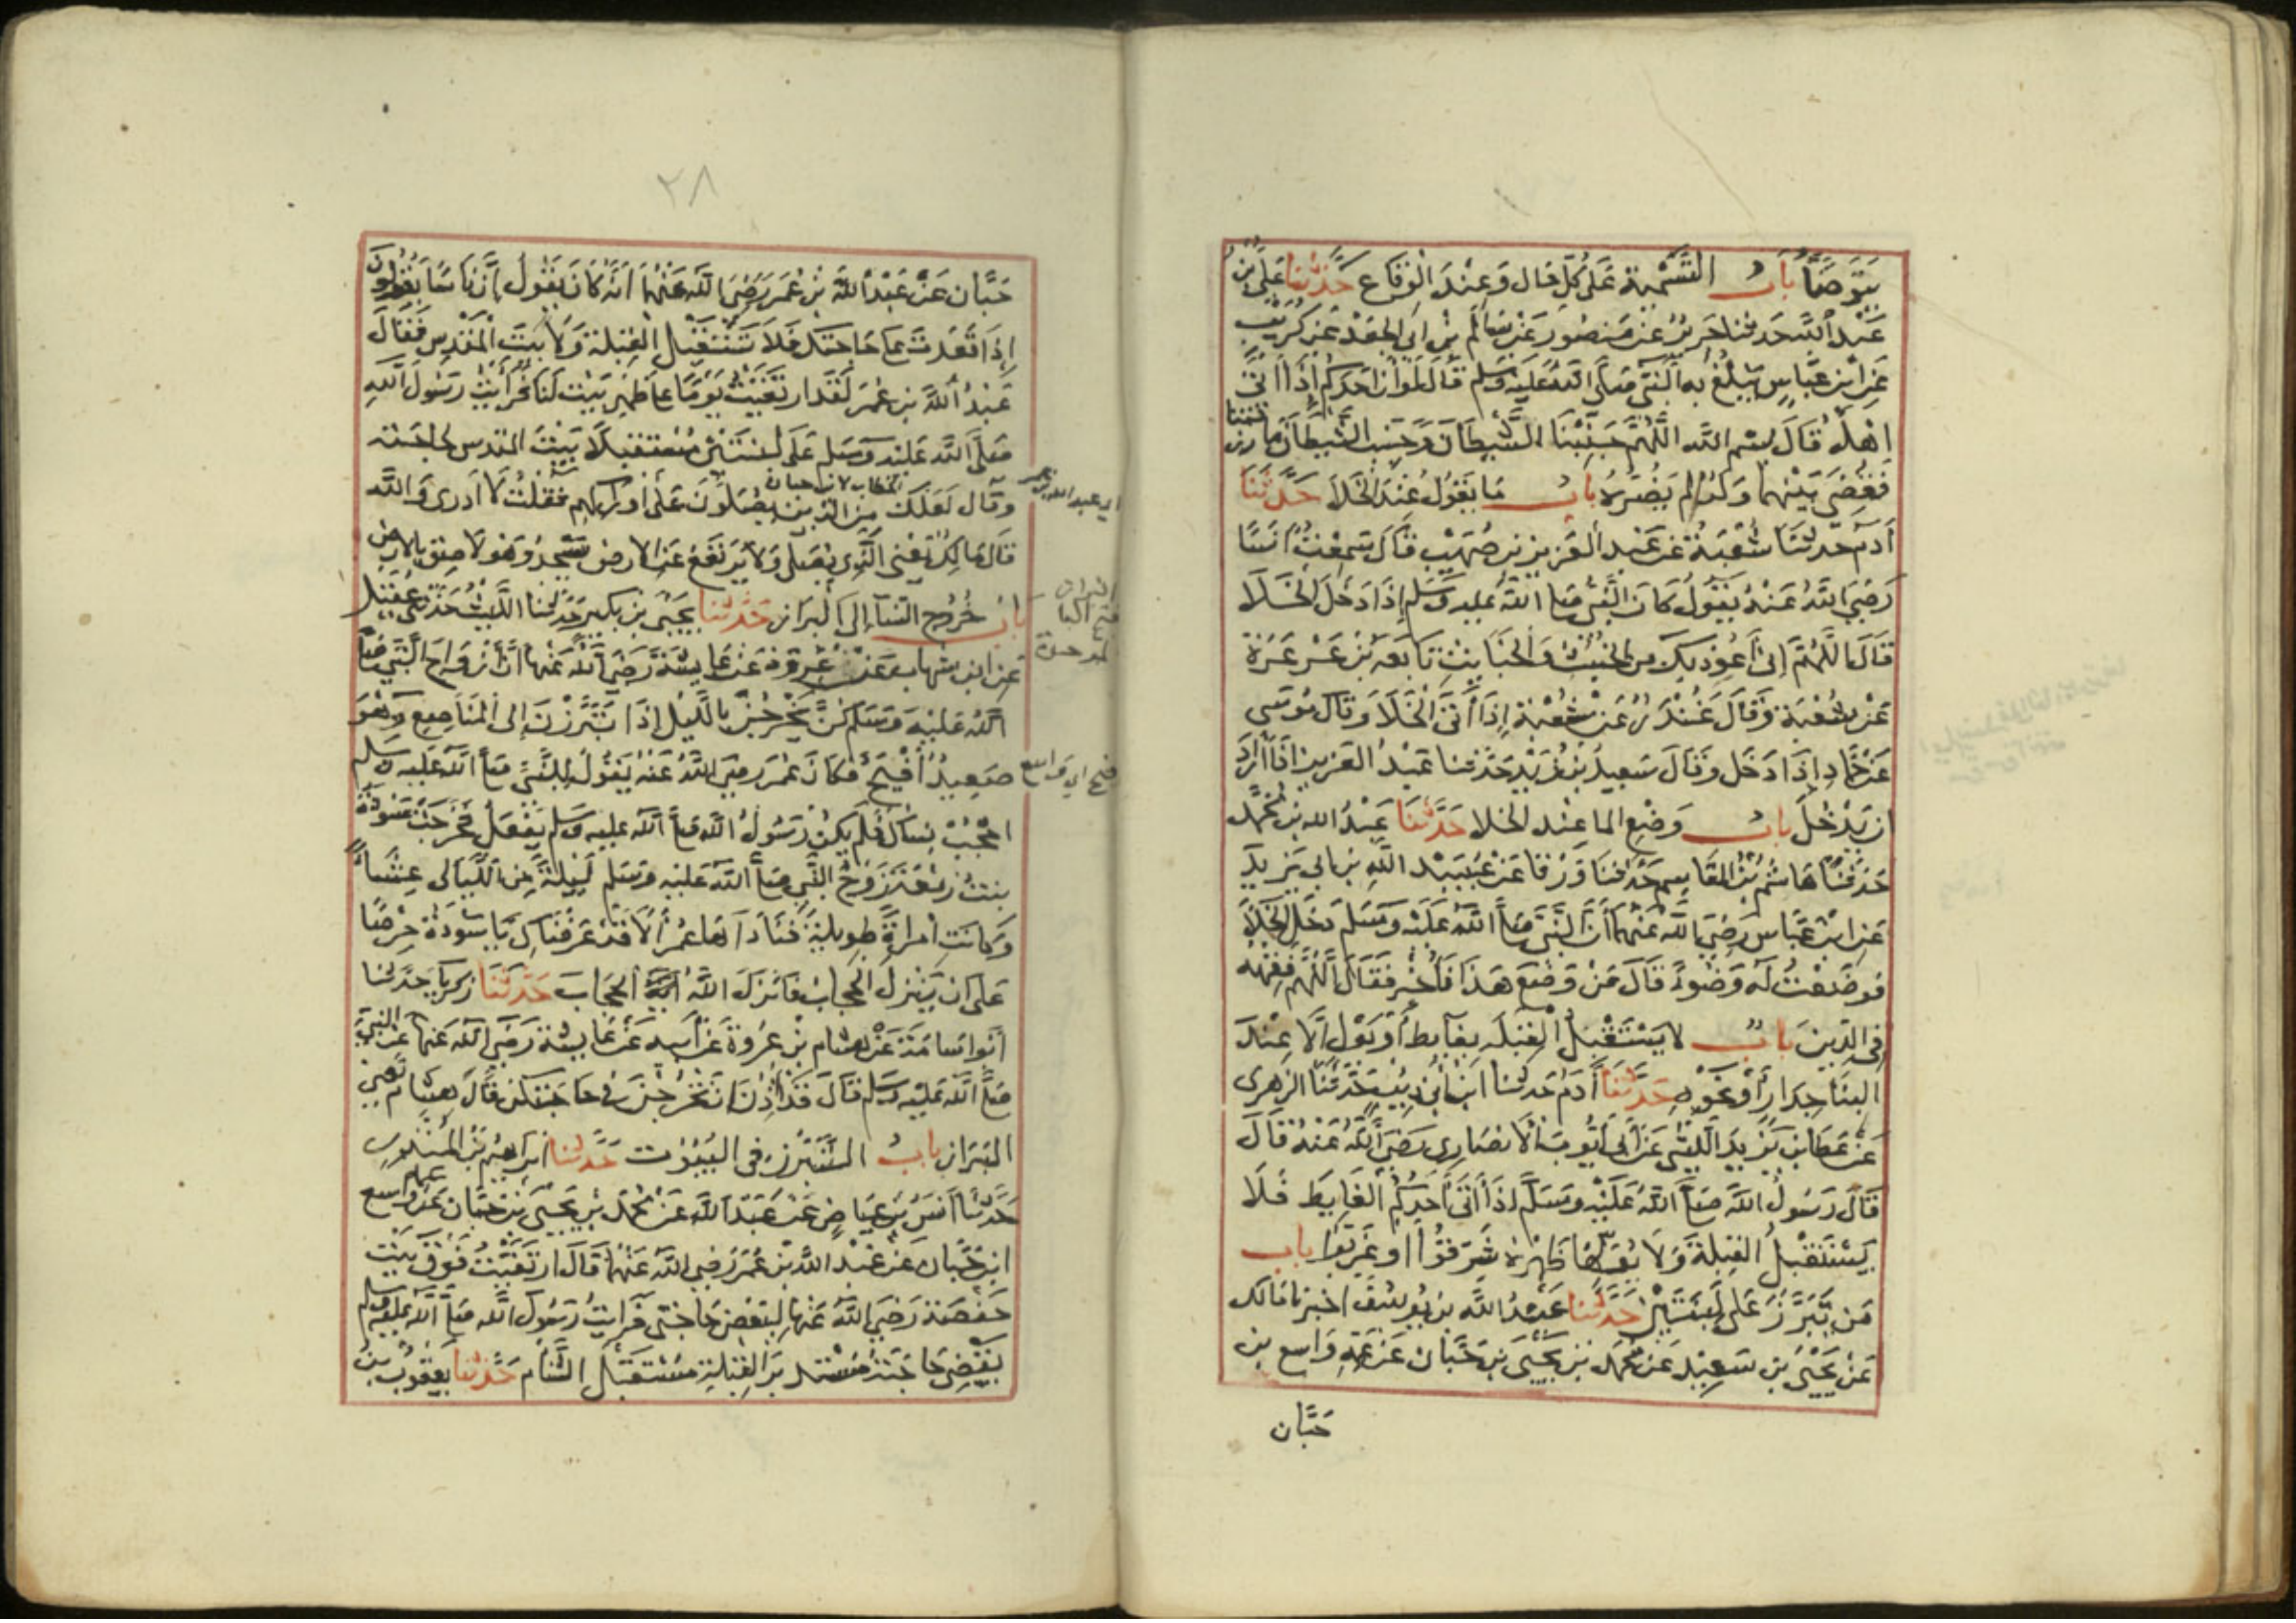 يتوضأ باب التسمية على كل حال وعند الوقاع حدثنا علي بن
عبد الله حدثنا جرير عن منصور عن سالم بن ابي الجعد عن كريب
عن ابن عباس يبلغ به النبي صلى الله عليه وسلم قال لو ان احدكم إذا اتى
اهله قال بسم الله اللهم جنبنا الشيطان وجنب الشيطان ما رزقتنا
فقضي بينهما ولد لم يضره باب ما يقول عند الخلا حدثنا
آدم حدثنا شعبة عن عبد العزيز بن صهيب قال سمعت انسا
رضي الله عنه يقول كان النبي صلى الله عليه وسلم إذا دخل الخلا
قال اللهم إني أعوذ بك من الخبث والخبائث تابعه بن عرعرة
عن شعبة وقال غندر عن شعبة إذا أتى الخلا وقال موسى
عن حماد إذا دخل وقال سعيد بن زيد حدثنا عبد العزيز اذا أراد
ان يدخل باب وضع الما عند الخلا حدثنا عبد الله بن محمد
حدثنا هاشم بن القاسم حدثنا ورقا عن عبيد الله بن ابي يزيد
عن ابن عباس رضي الله عنهما أن النبي صلى الله عليه وسلم دخل الخلا
فوضعت له وضوءا قال من وضع هذا فأخبر فقال اللهم فقهه
في الدين باب لا يستقبل القبلة بغايط أو بول إلا عند
البنا جدار أو نحوه حدثنا آدم حدثنا ابن أبي ذيب حدثنا الزهري
عن عطا بن يزيد الليثي عن أبي أيوب الانصاري رضي الله عنه قال
قال رسول الله صلى الله عليه وسلم إذا أتى أحدكم الغايط فلا
يستقبل القبلة ولا يولها ظهره شرقوا او غربوا باب
من تبرز على لبنتين حدثنا عبد الله بن يوسف اخبرنا مالك
عن يحيى بن سعيد عن محمد بن يحيى بن حبان عن عمه واسع بن
حبان
٢٨
حبان عن عبد الله بن عمر رضي الله عنهما أنه كان يقول إن ناسا يقولون
إذا قعدت على حاجتك فلا تستقبل القبلة ولا بيت المقدس فقال
عبد الله بن عمر لقد ارتقيت يوما على ظهر بيت لنا فرأيت رسول الله
صلى الله عليه وسلم على لبنتين مستقبلا بيت المقدس لحاجته
الخطاب لابن حبان
اي عبد الله بن عمر
وقال لعلك من الذين يصلون على أوراكهم فقلت لا أدري والله
قال مالك يعني الذي يصلي ولا يرتفع عن الارض يسجد وهو لاصق بالارض
باب خروج النسا إلى البراز حدثنا يحيى بن بكير حدثنا الليث حدثني عقيل
عن ابن شهاب عن عروة عن عايشة رضي الله عنها أن أزواج النبي صلى
الله عليه وسلم كن يخرجن بالليل إذا تبرزن إلى المناصع وهو
صعيد أفيح فكان عمر رضي الله عنه يقول للنبي صلى الله عليه وسلم
فيح اي واسع
احجب نساك فلم يكن رسول الله صلى الله عليه وسلم يفعل فخرجت سودة
بنت زمعة زوج النبي صلى الله عليه وسلم ليلة من الليالي عشاء
وكانت امراة طويلة فناداها عمر ألا قد عرفناك يا سودة حرصا
على ان ينزل الحجاب فانزل الله آية الحجاب حدثنا زكريا حدثنا
أبو اسامة عن هشام بن عروة عن أبيه عن عايشة رضي الله عنها عن النبي
صلى الله عليه وسلم قال قد أذن ان تخرجن في حاجتكن قال هشام تعني
البراز باب التبرز في البيوت حدثنا ابراهيم بن المنذر
حدثنا أنس بن عياض عن عبد الله عن محمد بن يحيى بن حبان عن عمه واسع
ابن حبان عن عبد الله بن عمر رضي الله عنهما قال ارتقيت فوق بيت
حفصة رضي الله عنها لبعض حاجتي فرايت رسول الله صلى الله عليه وسلم
يقضي حاجته مستدبر القبلة مستقبل الشام حدثنا يعقوب بن